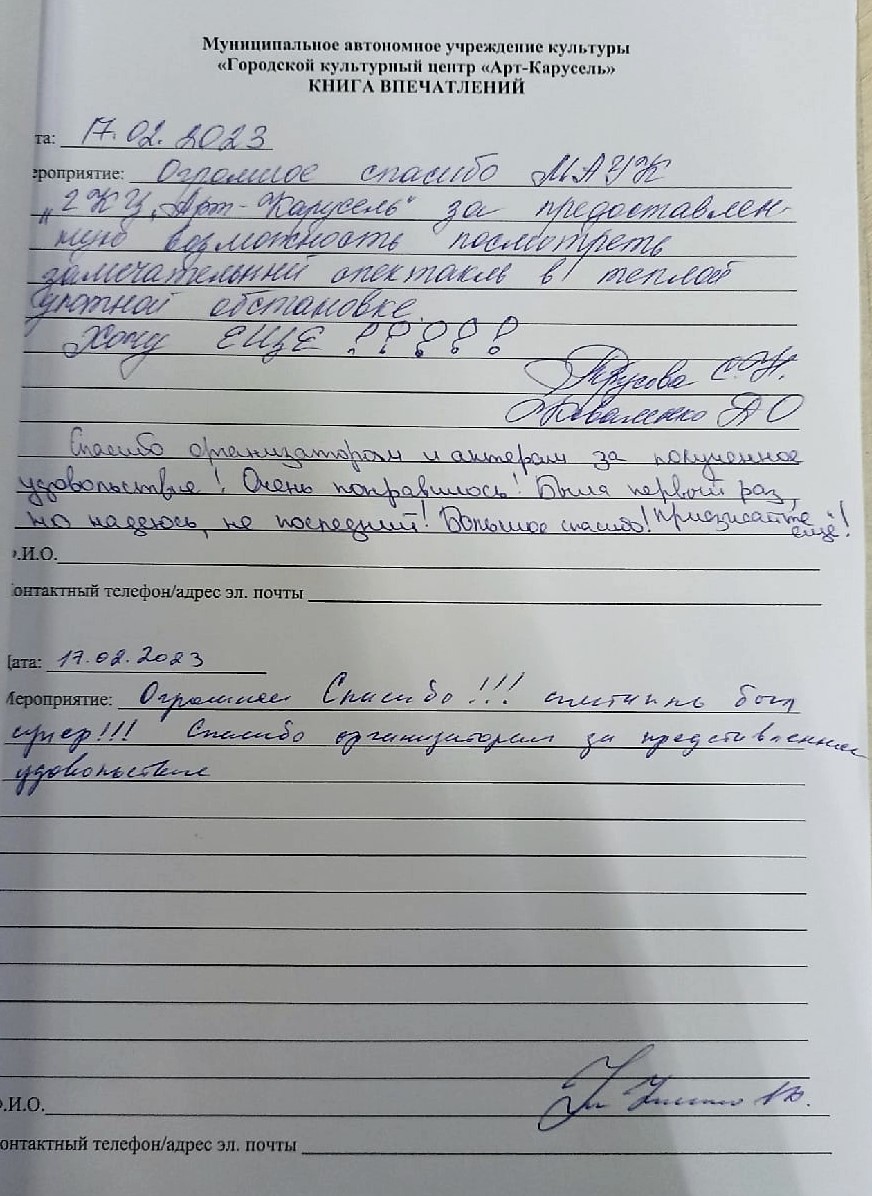 Муниципальное автономное учреждение культуры
«Городской культурный центр «Арт-Карусель»
КНИГА ВПЕЧАТЛЕНИЙ
та: 17.02.2023
ероприятие: Огромное спасибо МАУК
„ГКЦ „Арт-Карусель" за предоставлен-
ную возможность посмотреть
замечательный спектакль в теплой
уютной обстановке.
Хочу ЕЩЕ !!!!!
Трусова С.Н.
Коваленко Я О
Спасибо организаторам и актерам за полученное
удовольствие! Очень понравилось! Была первый раз,
но надеюсь, не последний! Большое спасибо! Приглашайте
ещё!
.И.О.
онтактный телефон/адрес эл. почты
Дата: 17.02.2023
Мероприятие: Огромное Спасибо!!! спектакль был
супер!!! Спасибо организаторам за представленное
удовольствие
.И.О.
онтактный телефон/адрес эл. почты